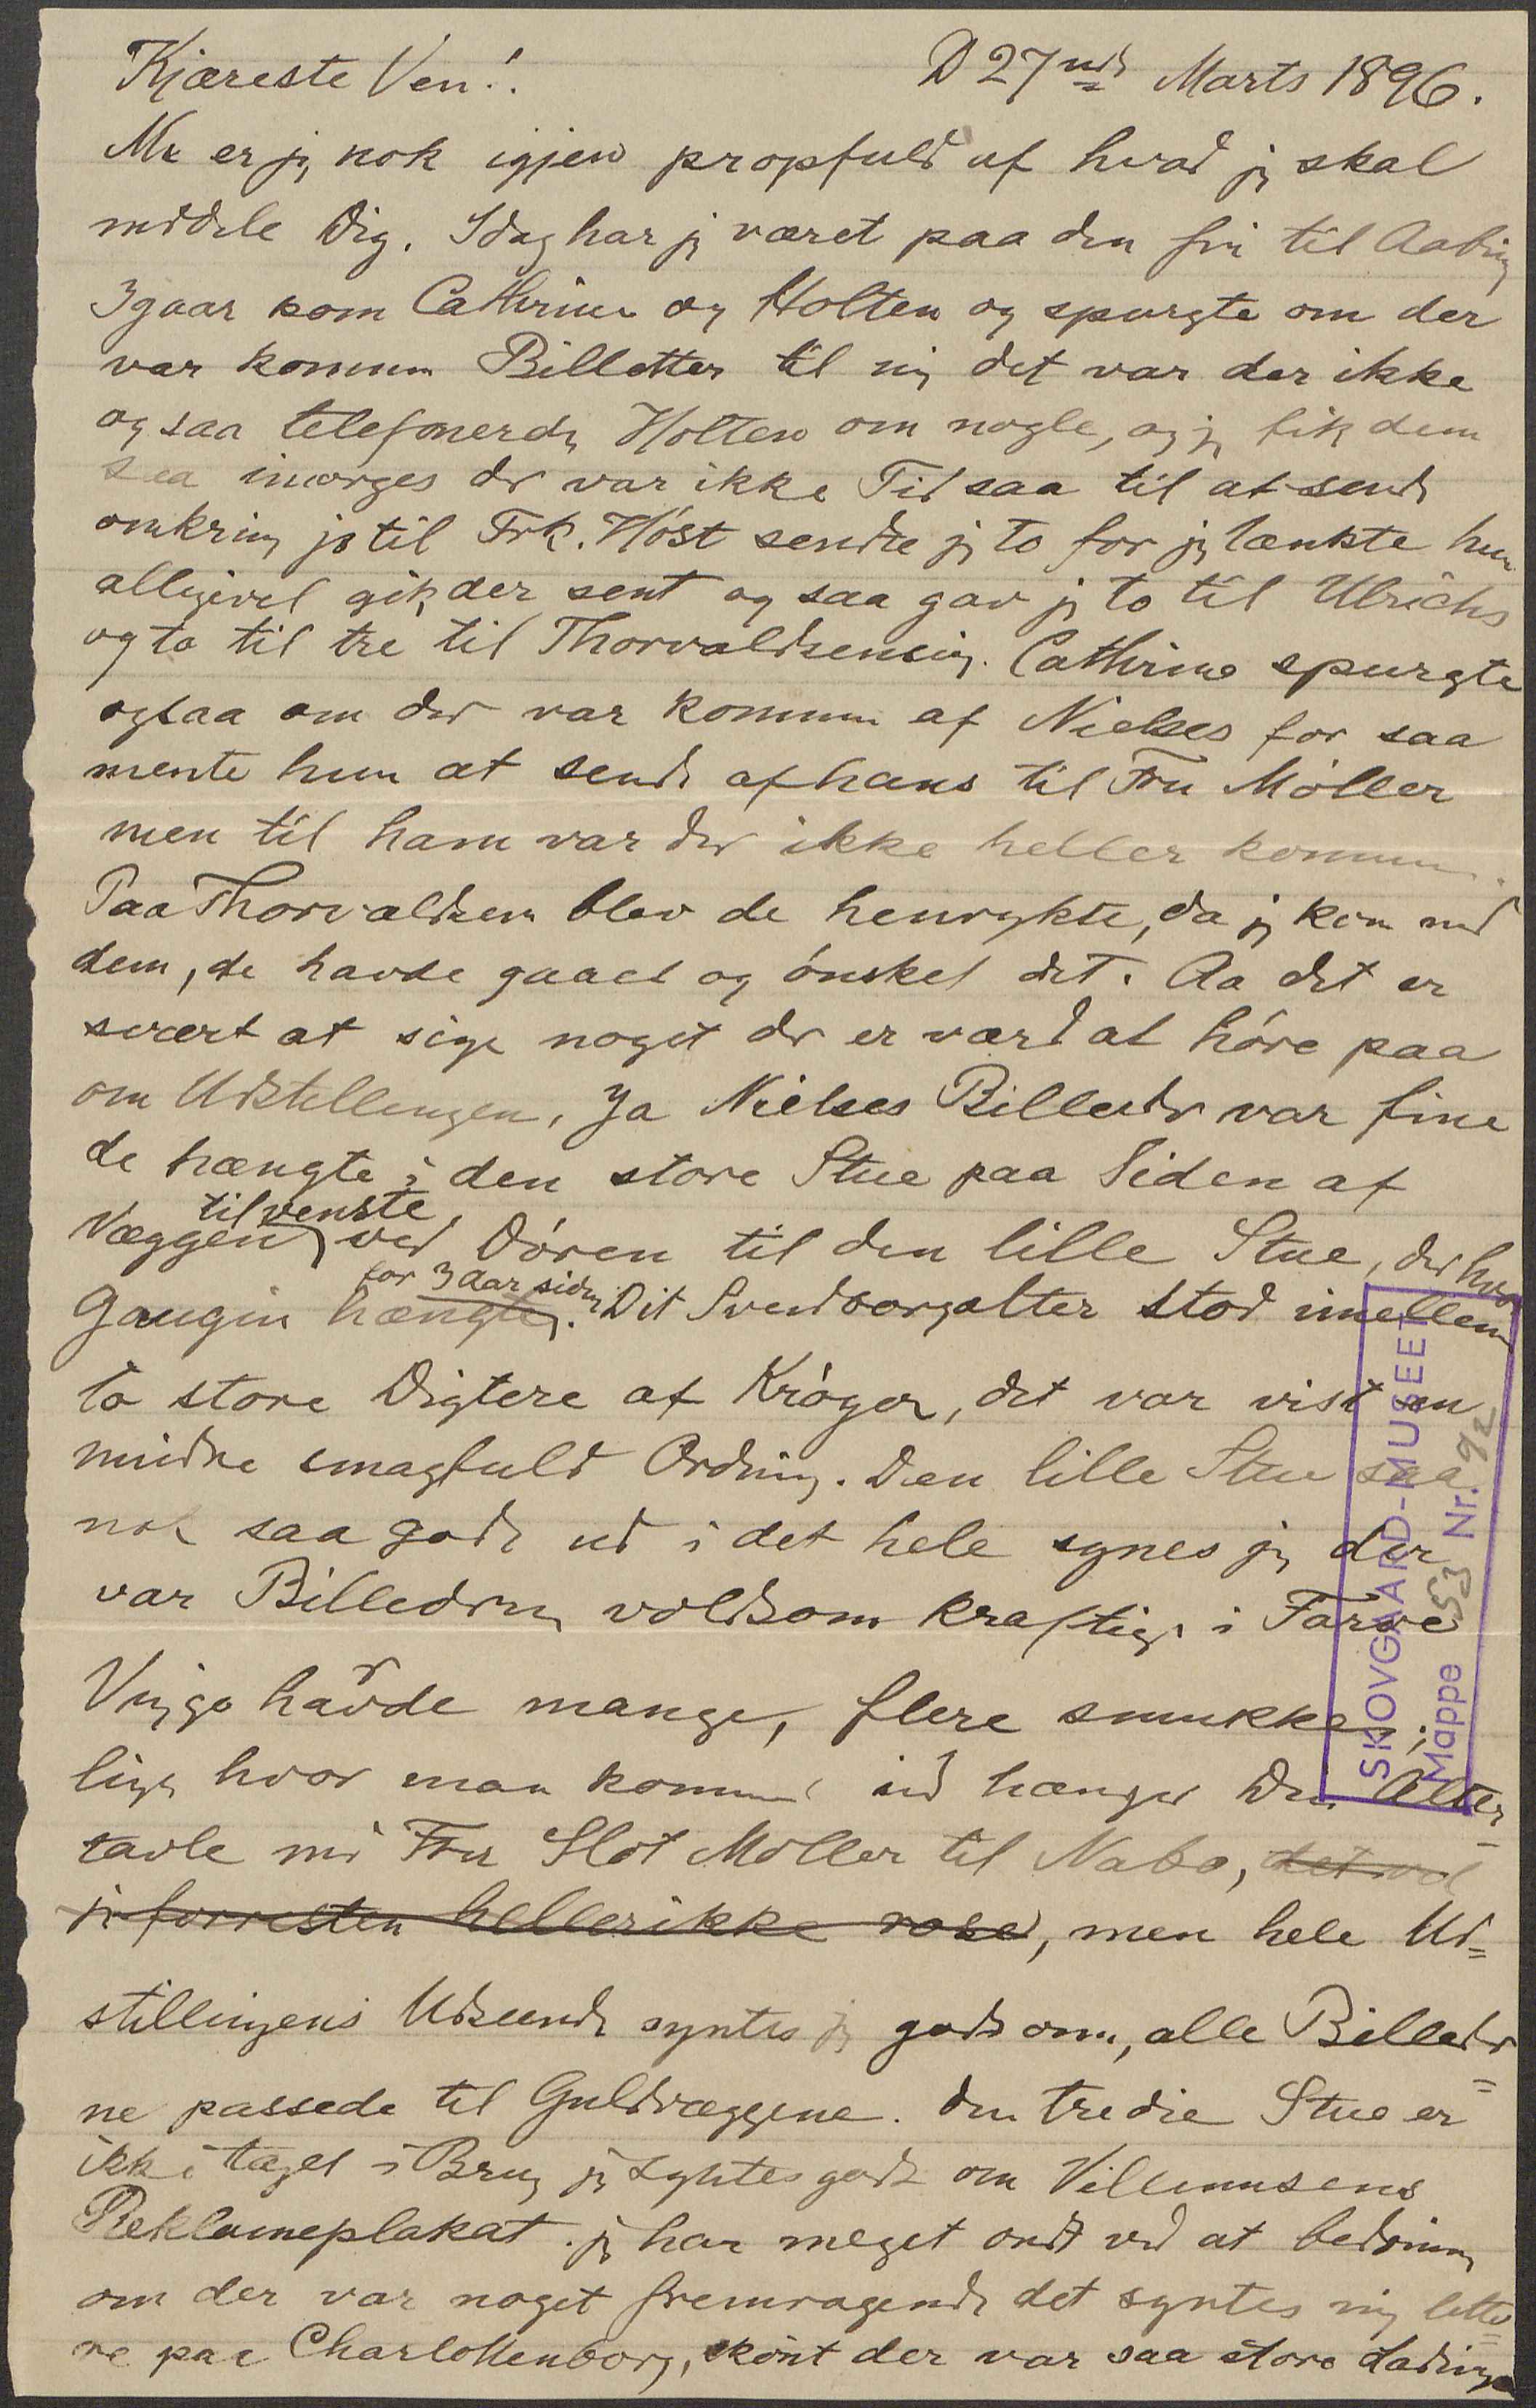 Kjæreste Ven!. D 27nde Marts 1896.
Nu er jeg nok igjen propfuld af hvad jeg skal
meddele Dig. Idag har jeg været paa den fri til Aabning
Igaar kom Cathrine og Holten og spurgte om der
var kommen Billetter til mig det var der ikke
og saa telefonerede Holten om nogle, og jeg fik dem
saa imorges der var ikke Tid saa til at sende
omkring jo til Frk. Høst sendte jeg to for jeg tænkte hun
alligevel gik der sent og saa gav jeg to til Ulrichs
og to til tre til Thorvaldsensvej. Cathrine spurgte
ogsaa om der var kommen af Nielses for saa
mente hun at sende af hans til Fru Møller
men til ham var der ikke heller kommen.
Paa Thorvaldsen blev de henrykte, da jeg kom med
dem, de havde gaaet og ønsket det. Aa det er
svært at sige noget der er værd at høre paa
om Udstellingen, Ja Nielses Billeder var fine
de hængte i den store Stue paa Siden af
Væggen til venste ved Døren til den lille Stue, der hvor
Gaugin hængte for 3 Aar siden. Dit Svendborgalter stod imellem
to store Digtere af Krøyer, det var vist en
mindre smagfuld Ordning. Den lille Stue saa
nok saa godt ud i det hele synes jeg der
var Billederne voldsom kraftige i Farve
Viggo havde mange, flere smukke;
lige hvor man kommer ind hænger Din Alter-
tavle med Fru Slot Møller til Nabo, det ved
jeg forresten heller ikke rose, men hele Ud=
stillingens Udseende syntes jeg godt om, alle Billeder=
ne passede til Guldvæggene. Den tredie Stue er
ikke taget i Brug jeg syntes godt om Villumsens
Reklameplakat. jeg har meget ondt ved at bedømme
om der var noget fremragende det syntes mig lette=
re paa Charlottenborg, skønt der var saa store Ladninger
SKOVGAARD-MUSEET
Mappe 53 Nr. 92